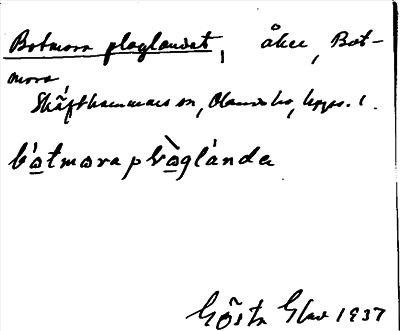 Botmora ploglandet, åker, Bot-
mora
Skäfthammars sn, Olands hd, Upps. l.
bo̱tmora plo̱glánda
Gösta 1937